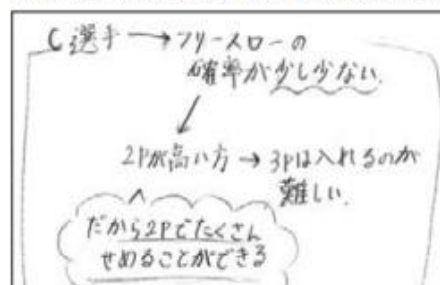 C選手→フリースローの
確率が少し少ない
2Pが高い方→3Pは入れるのが
難しい.
だから2Pでたくさん
せめることができる